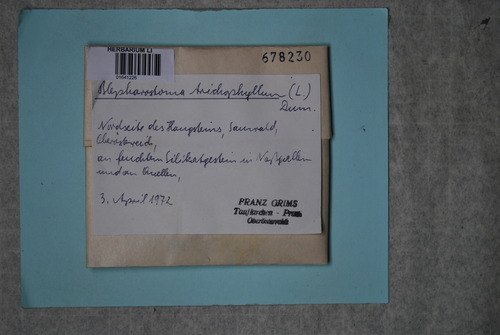 HERBARIUM LI
01641226
678230
Blepharostoma trichophyllum (L.)
Dum.
Nordseite des Haugsteins, Sauwald,
Oberösterreich,
an feuchtem Silikatgestein in
und an Quellen,
3. April 1972
FRANZ GRIMS
Taufkirchen - Pram
Oberösterreich